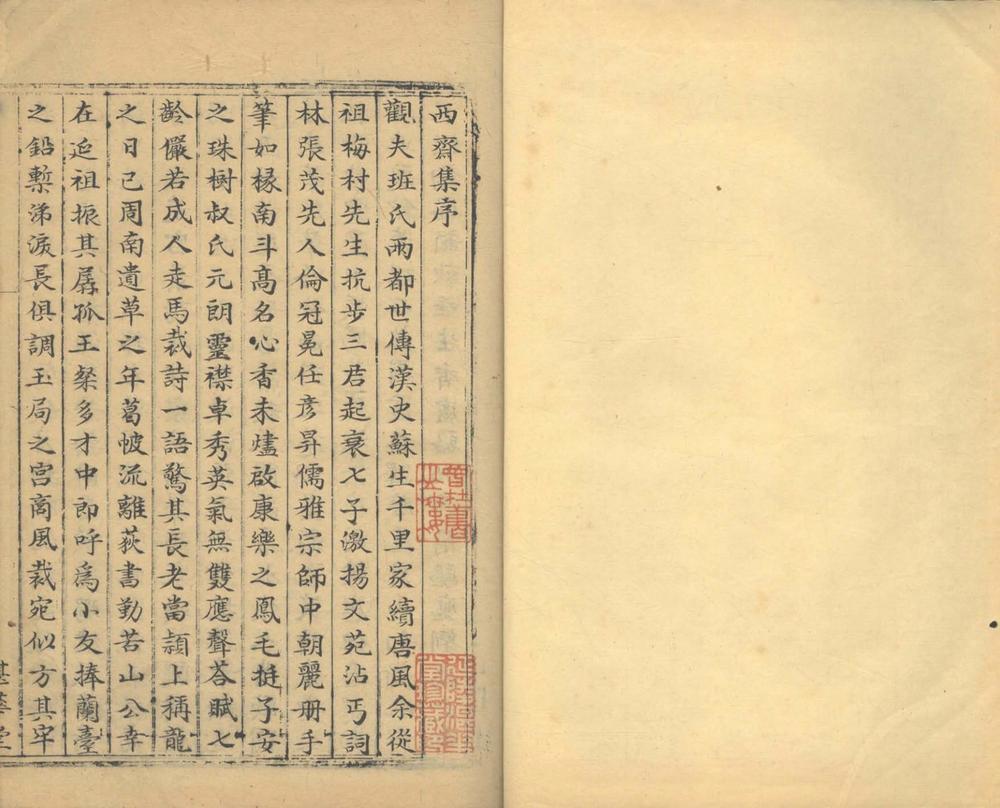 西齋集序
觀夫班氏兩都世傳漢史蘇生千里家續唐風余從
祖梅村先生抗步三君起衰七子激揚文苑沾丐詞
林張茂先人倫冠冕任彦昇儒雅宗師中朝麗册手
筆如椽南斗髙名心香未燼啟康樂之鳳毛挺子安
之珠樹叔氏元朗靈襟卓秀英氣無雙應聲荅賦七
齡儼若成人走馬裁詩一語驚其長老當潁上稱龍
之日已周南遺草之年葛帔流離荻書勤苦山公幸
在迠祖振其孱孤王粲多才中郎呼為小友捧蘭臺
之鉛槧涕淚長俱調玉局之宫商風裁宛似方其牢